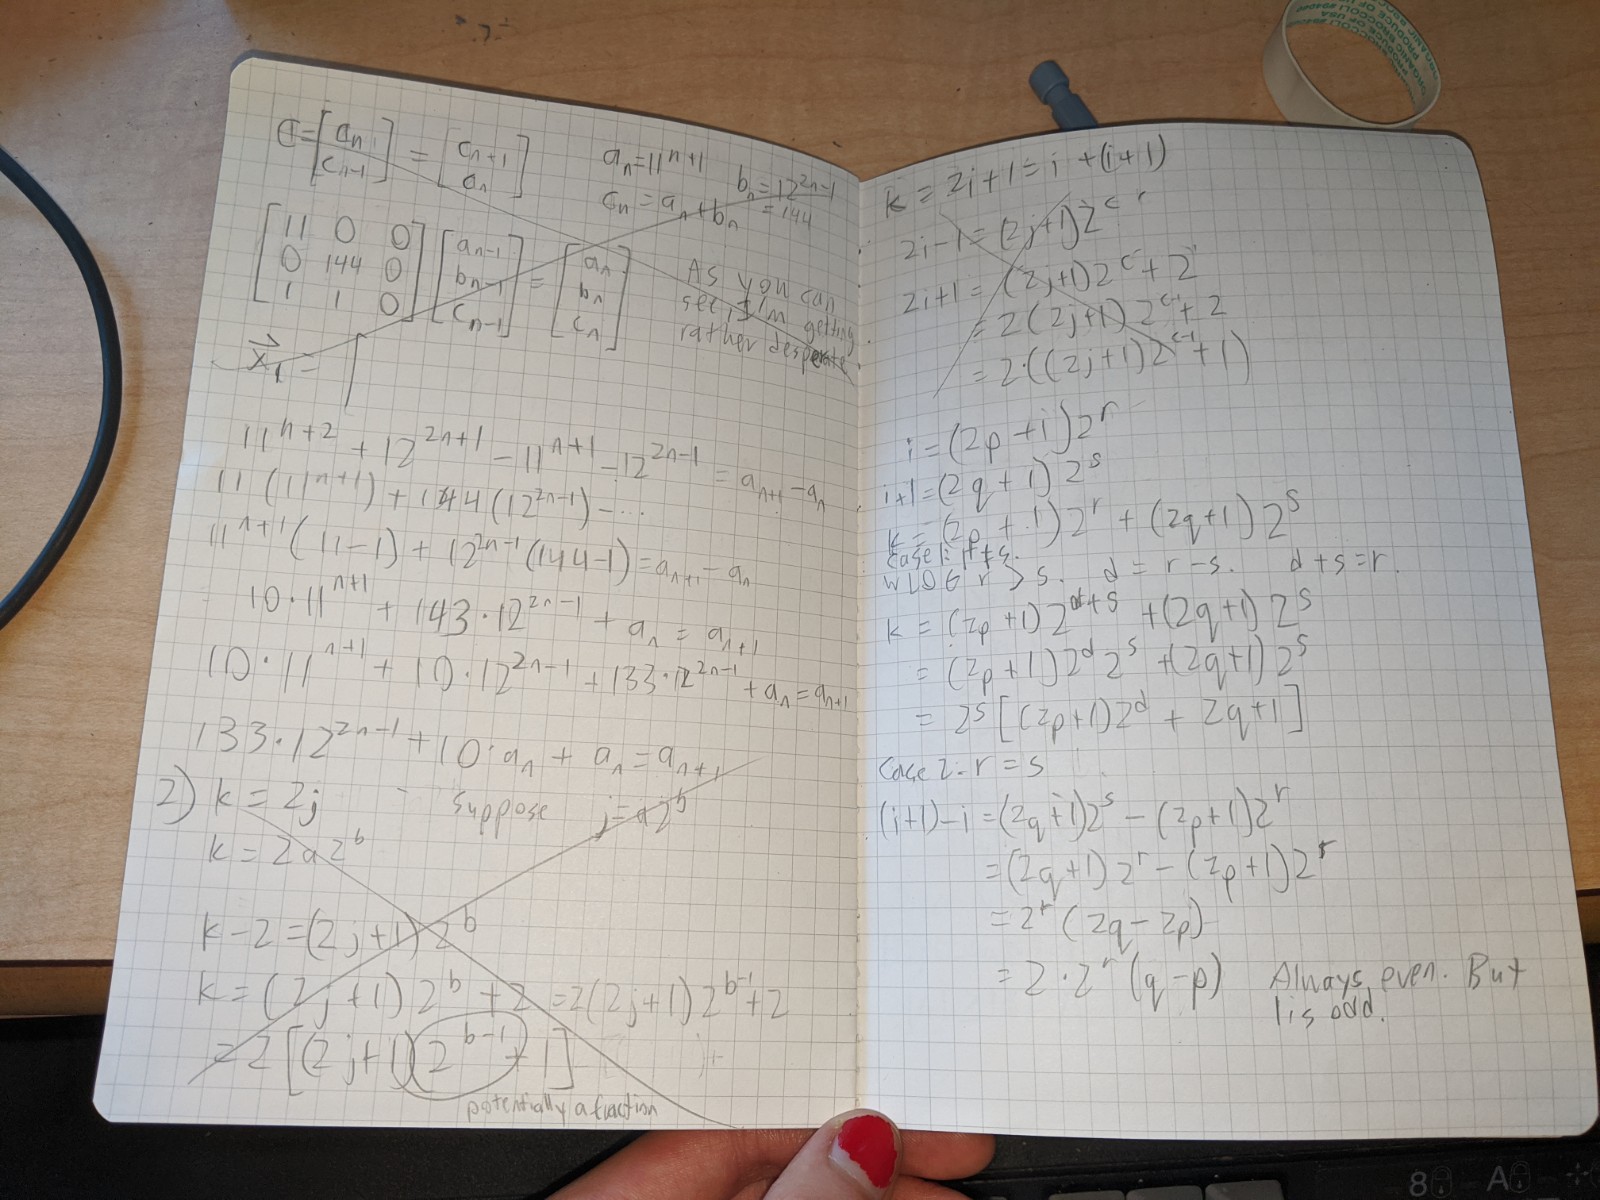 C=[a_{n-1} / c_{n-1}] = [c_{n+1} / a_n]
a_n=11^{n+1} b_n=12^{2n-1}
c_n=a_n+b_n =144
[11 0 0 / 0 144 0 / 1 1 0] [a_{n-1} / b_{n-1} / c_{n-1}] = [a_n / b_n / c_n]
As you can
see, I'm getting
rather desperate
x⃗_1 = [
11^{n+2} + 12^{2n+1} - 11^{n+1} - 12^{2n-1} = a_{n+1} - a_n
11 (11^{n+1}) + 144 (12^{2n-1}) - ...
11^{n+1} (11-1) + 12^{2n-1} (144-1) = a_{n+1} - a_n
10·11^{n+1} + 143·12^{2n-1} + a_n = a_{n+1}
10·11^{n+1} + 10·12^{2n-1} + 133·12^{2n-1} + a_n = a_{n+1}
133·12^{2n-1} + 10·a_n + a_n = a_{n+1}
2) k = 2j - suppose j = a2^b
k = 2a2^b
k-2 = (2j+1) 2^b
k = (2j+1) 2^b + 2 = 2(2j+1) 2^{b-1} + 2
= 2 [(2j+1) 2^{b-1} + 1]
potentially a fraction
k = 2i+1 = i + (i+1)
2i-1 = (2j+1) 2^c r
2i+1 = (2j+1) 2^c + 2
= 2 (2j+1) 2^{c-1} + 2
= 2·((2j+1) 2^{c-1} + 1)
i = (2p+1) 2^r
i+1 = (2q+1) 2^s
k = (2p+1) 2^r + (2q+1) 2^s
case 1: r≠s.
WLOG r > s. d = r-s. d+s=r.
k = (2p+1) 2^{d+s} + (2q+1) 2^s
= (2p+1) 2^d 2^s + (2q+1) 2^s
= 2^s [(2p+1) 2^d + 2q+1]
Case 2: r = s
(i+1)-i = (2q+1) 2^s - (2p+1) 2^r
= (2q+1) 2^r - (2p+1) 2^r
= 2^r (2q-2p)
= 2·2^r (q-p) Always even. But
1 is odd.
8 A